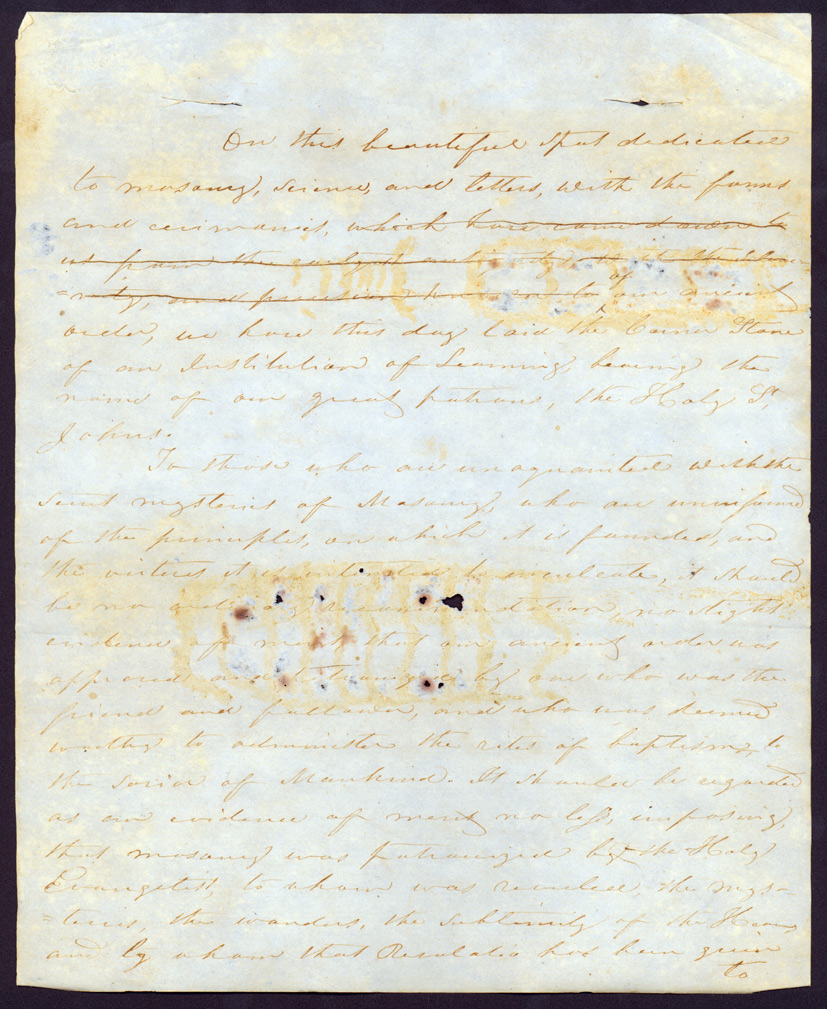 On this beautiful spot dedicated
to masony, science, and letters, with the forms
and cerimonies, which have come down to
us from the earliest antiquity, to the
=nity, and of our ancient
order, we have this day laid the Corner Stone
of an Institution of Learning, bearing the
name of our great patrons, the Holy St.
Johns.
To those who are unaquainted with the
secret mysteries of Masony, who are uninformed
of the principles, on which it is founded, and
the virtues it is intended to inculcate, it should
be no ordinary recommendation, no slight
evidence of merit that our ancient order was
approved and patronized by one who was the
friend and follower, and who was deemed
worthy to administer the rites of baptism, to
the Savior of Mankind. It should be regarded
as an evidence of merit no less, imposing,
that masony was patronized by the Holy
Evangelist, to whom was revealed, the mys=
=teries, the wonders, the sublimity of the
and by whom that Revelatio has been given
to